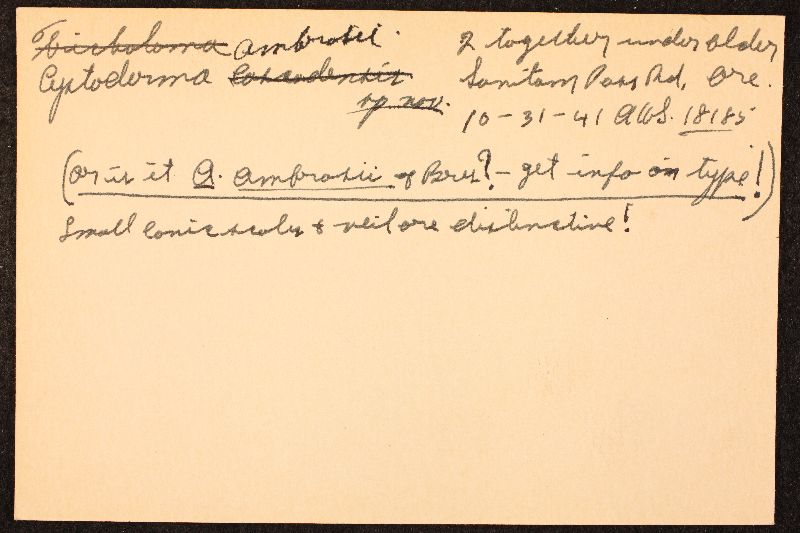 Tricholoma ambrosii.
Cystoderma Cascadensis
sp nov.
2 together under alder
Santiam Pass Rd, Ore.
10-31-41 AHS. 18185
(or is it A. ambrosii of Bres? - get info on type!)
Small conic scales & veil are distinctive!